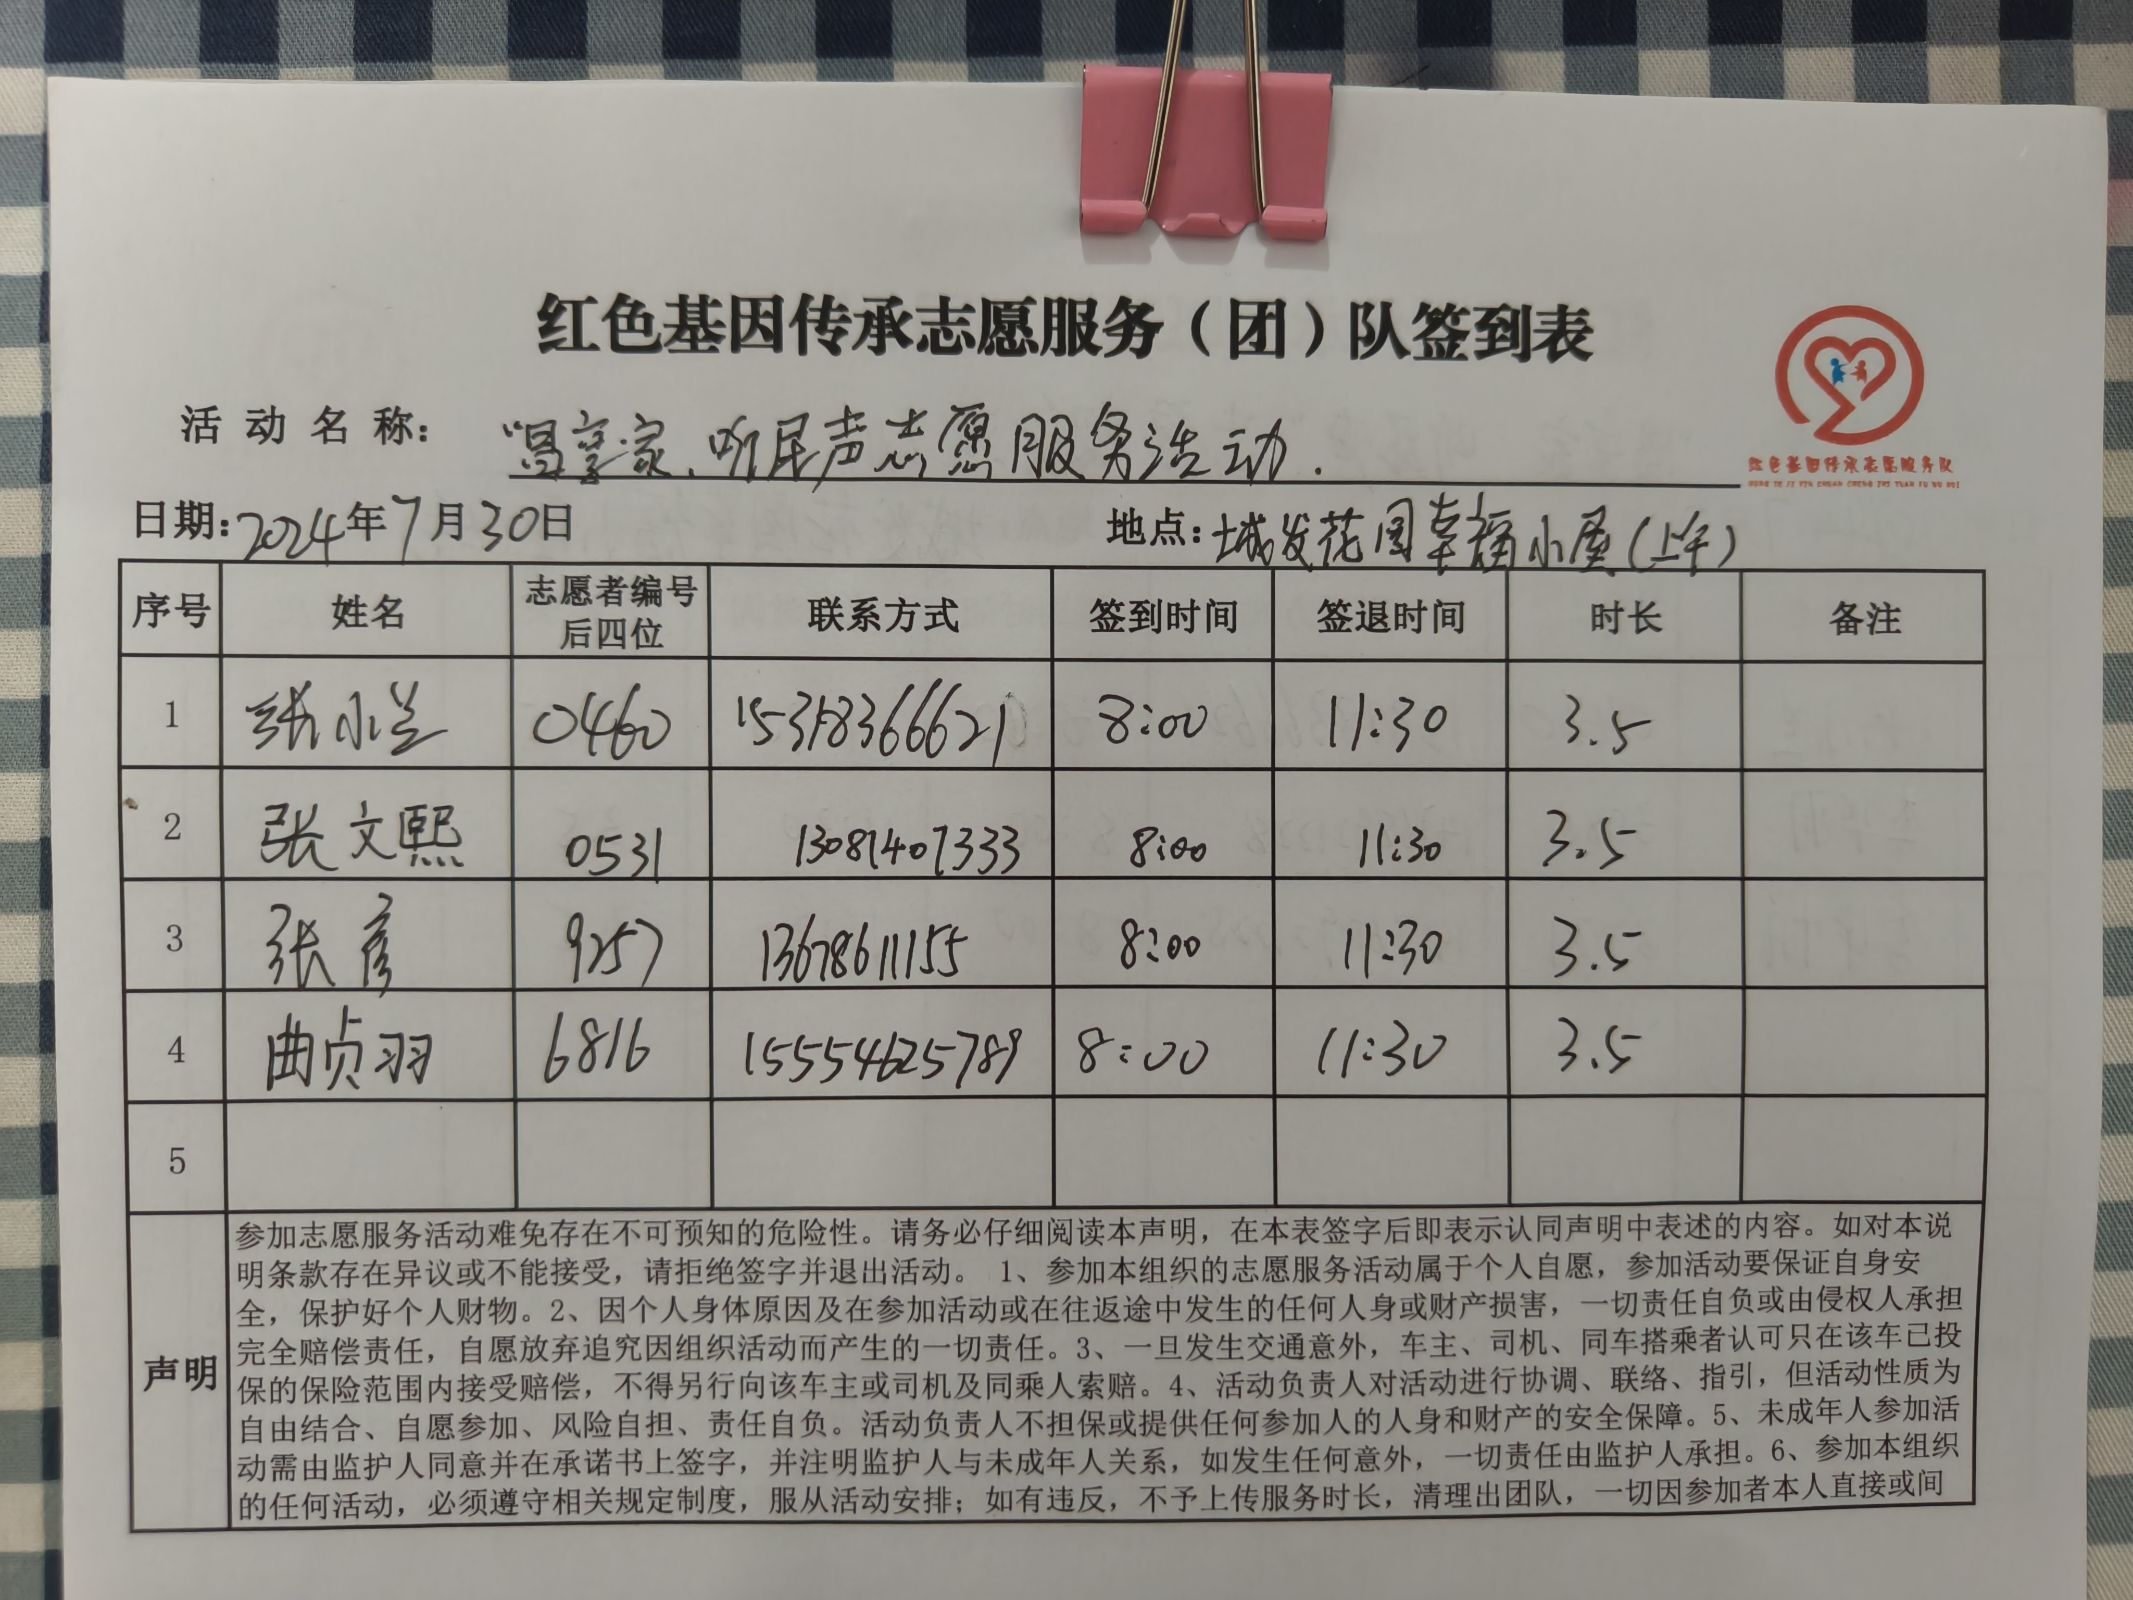 红色基因传承志愿服务（团）队签到表
活动名称：享家、听民声志愿服务活动.
红色基因传承志愿服务队
日期：2024年7月30日 地点：城发花园幸福小屋(上午)
序号 姓名 志愿者编号后四位 联系方式 签到时间 签退时间 时长 备注
1 张小兰 0460 15318366621 8:00 11:30 3.5
2 张文熙 0531 13081407333 8:00 11:30 3.5
3 张彦 9257 13678611155 8:00 11:30 3.5
4 曲贞羽 6816 15554625789 8:00 11:30 3.5
5
声明
参加志愿服务活动难免存在不可预知的危险性。请务必仔细阅读本声明，在本表签字后即表示认同声明中表述的内容。如对本说
明条款存在异议或不能接受，请拒绝签字并退出活动。 1、参加本组织的志愿服务活动属于个人自愿，参加活动要保证自身安
全，保护好个人财物。2、因个人身体原因及在参加活动或在往返途中发生的任何人身或财产损害，一切责任自负或由侵权人承担
完全赔偿责任，自愿放弃追究因组织活动而产生的一切责任。3、一旦发生交通意外，车主、司机、同车搭乘者认可只在该车已投
保的保险范围内接受赔偿，不得另行向该车主或司机及同乘人索赔。4、活动负责人对活动进行协调、联络、指引，但活动性质为
自由结合、自愿参加、风险自担、责任自负。活动负责人不担保或提供任何参加人的人身和财产的安全保障。5、未成年人参加活
动需由监护人同意并在承诺书上签字，并注明监护人与未成年人关系，如发生任何意外，一切责任由监护人承担。6、参加本组织
的任何活动，必须遵守相关规定制度，服从活动安排；如有违反，不予上传服务时长，清理出团队，一切因参加者本人直接或间